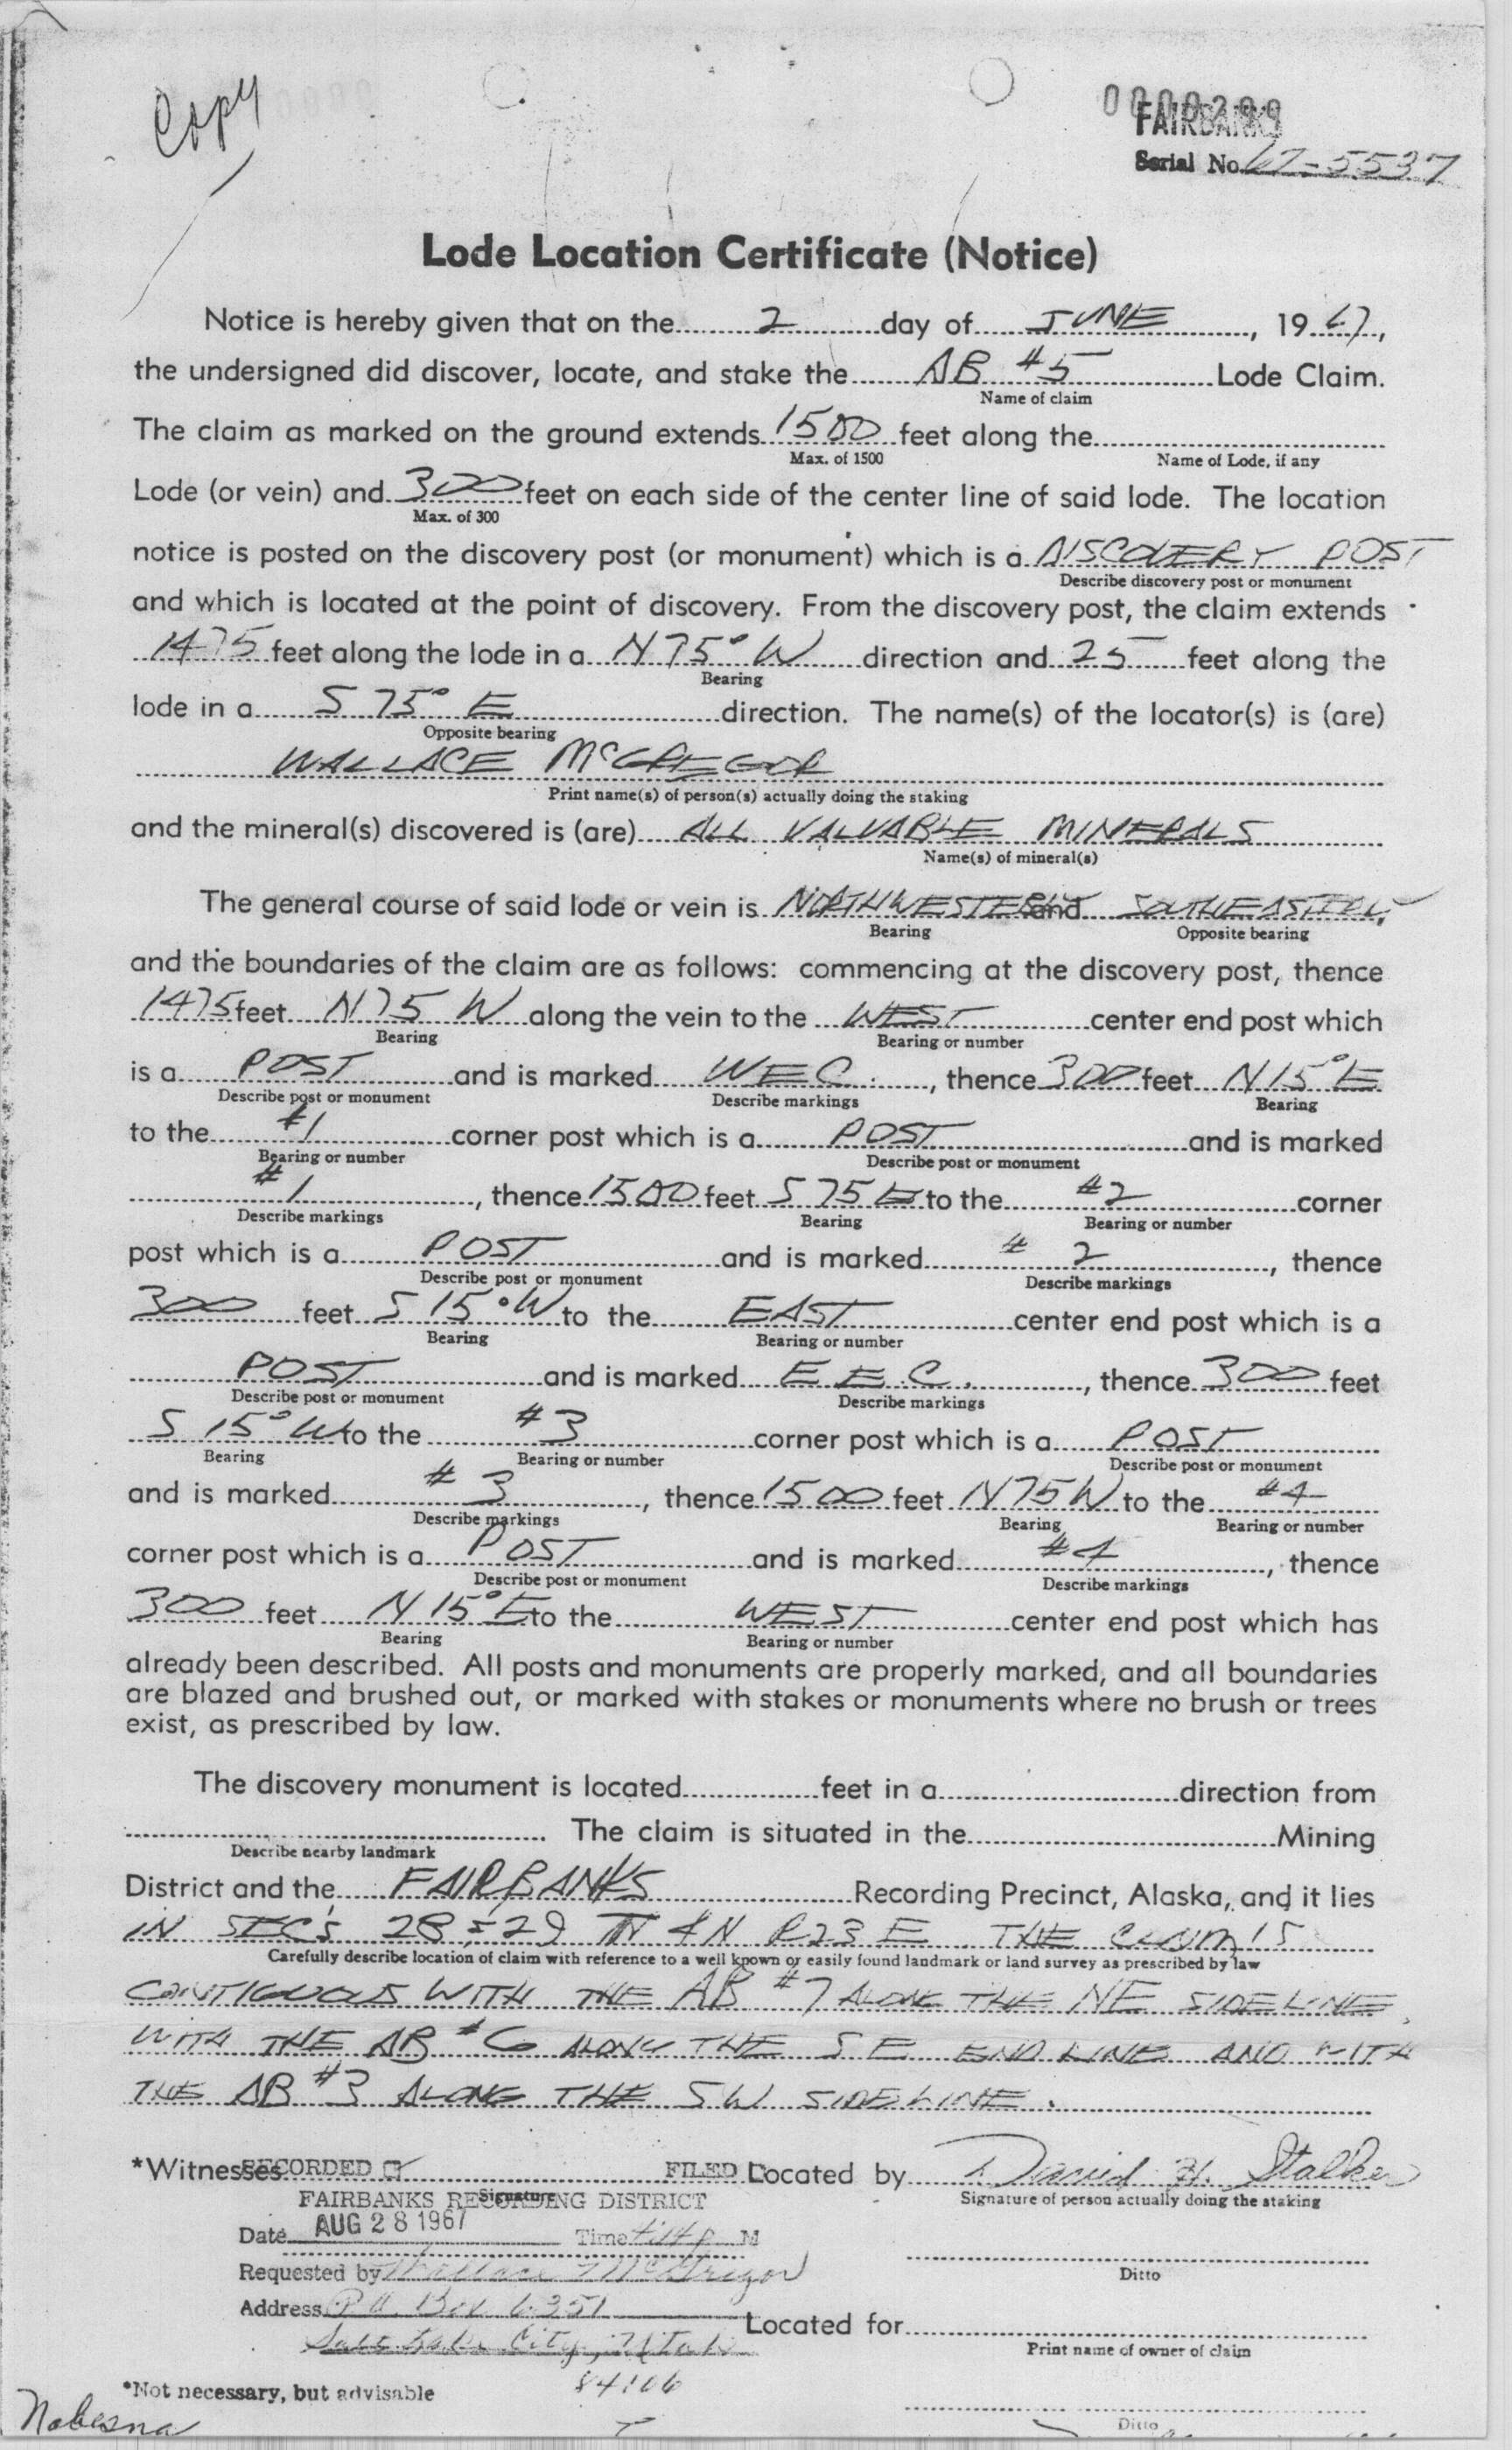 Copy
0000299
FAIRBANKS
Serial No. 67-5537
Lode Location Certificate (Notice)
Notice is hereby given that on the 2 day of JUNE, 1967,
the undersigned did discover, locate, and stake the AB #5 Lode Claim.
Name of claim
The claim as marked on the ground extends 1500 feet along the
Max. of 1500 Name of Lode, if any
Lode (or vein) and 300 feet on each side of the center line of said lode. The location
Max. of 300
notice is posted on the discovery post (or monument) which is a DISCOVERY POST
Describe discovery post or monument
and which is located at the point of discovery. From the discovery post, the claim extends
1475 feet along the lode in a N 75° W direction and 25 feet along the
Bearing
lode in a S 75° E direction. The name(s) of the locator(s) is (are)
Opposite bearing
WALLACE McGREGOR
Print name(s) of person(s) actually doing the staking
and the mineral(s) discovered is (are) ALL VALUABLE MINERALS
Name(s) of mineral(s)
The general course of said lode or vein is NORTHWESTERLY and SOUTHEASTERLY,
Bearing Opposite bearing
and the boundaries of the claim are as follows: commencing at the discovery post, thence
1475 feet N75 W along the vein to the WEST center end post which
Bearing Bearing or number
is a POST and is marked WEC., thence 300 feet N 15° E
Describe post or monument Describe markings Bearing
to the #1 corner post which is a POST and is marked
Bearing or number Describe post or monument
#1, thence 1500 feet S 75 E to the #2 corner
Describe markings Bearing Bearing or number
post which is a POST and is marked # 2, thence
Describe post or monument Describe markings
300 feet S 15° W to the EAST center end post which is a
Bearing Bearing or number
POST and is marked E.E.C., thence 300 feet
Describe post or monument Describe markings
S 15° W to the #3 corner post which is a POST
Bearing Bearing or number Describe post or monument
and is marked # 3, thence 1500 feet N75W to the #4
Describe markings Bearing Bearing or number
corner post which is a POST and is marked #4, thence
Describe post or monument Describe markings
300 feet N 15° E to the WEST center end post which has
Bearing Bearing or number
already been described. All posts and monuments are properly marked, and all boundaries
are blazed and brushed out, or marked with stakes or monuments where no brush or trees
exist, as prescribed by law.
The discovery monument is located feet in a direction from
. The claim is situated in the Mining
Describe nearby landmark
District and the FAIRBANKS Recording Precinct, Alaska, and it lies
IN SEC'S 28 & 29 T 4 N R 23 E THE CLAIM IS
Carefully describe location of claim with reference to a well known or easily found landmark or land survey as prescribed by law
CONTIGUOUS WITH THE AB #7 ALONG THE NE SIDELINE,
WITH THE AB #6 ALONG THE S E END LINE AND WITH
THE AB #3 ALONG THE SW SIDELINE.
*Witnesses RECORDED FILED Located by David H. Stalker
Signature Signature of person actually doing the staking
FAIRBANKS RECORDING DISTRICT
Date AUG 28 1967 Time M
Requested by Wallace McGregor
Ditto
Address P.O. Box 6351
Located for
Salt Lake City, Utah
Print name of owner of claim
84106
*Not necessary, but advisable
Nabesna
Ditto